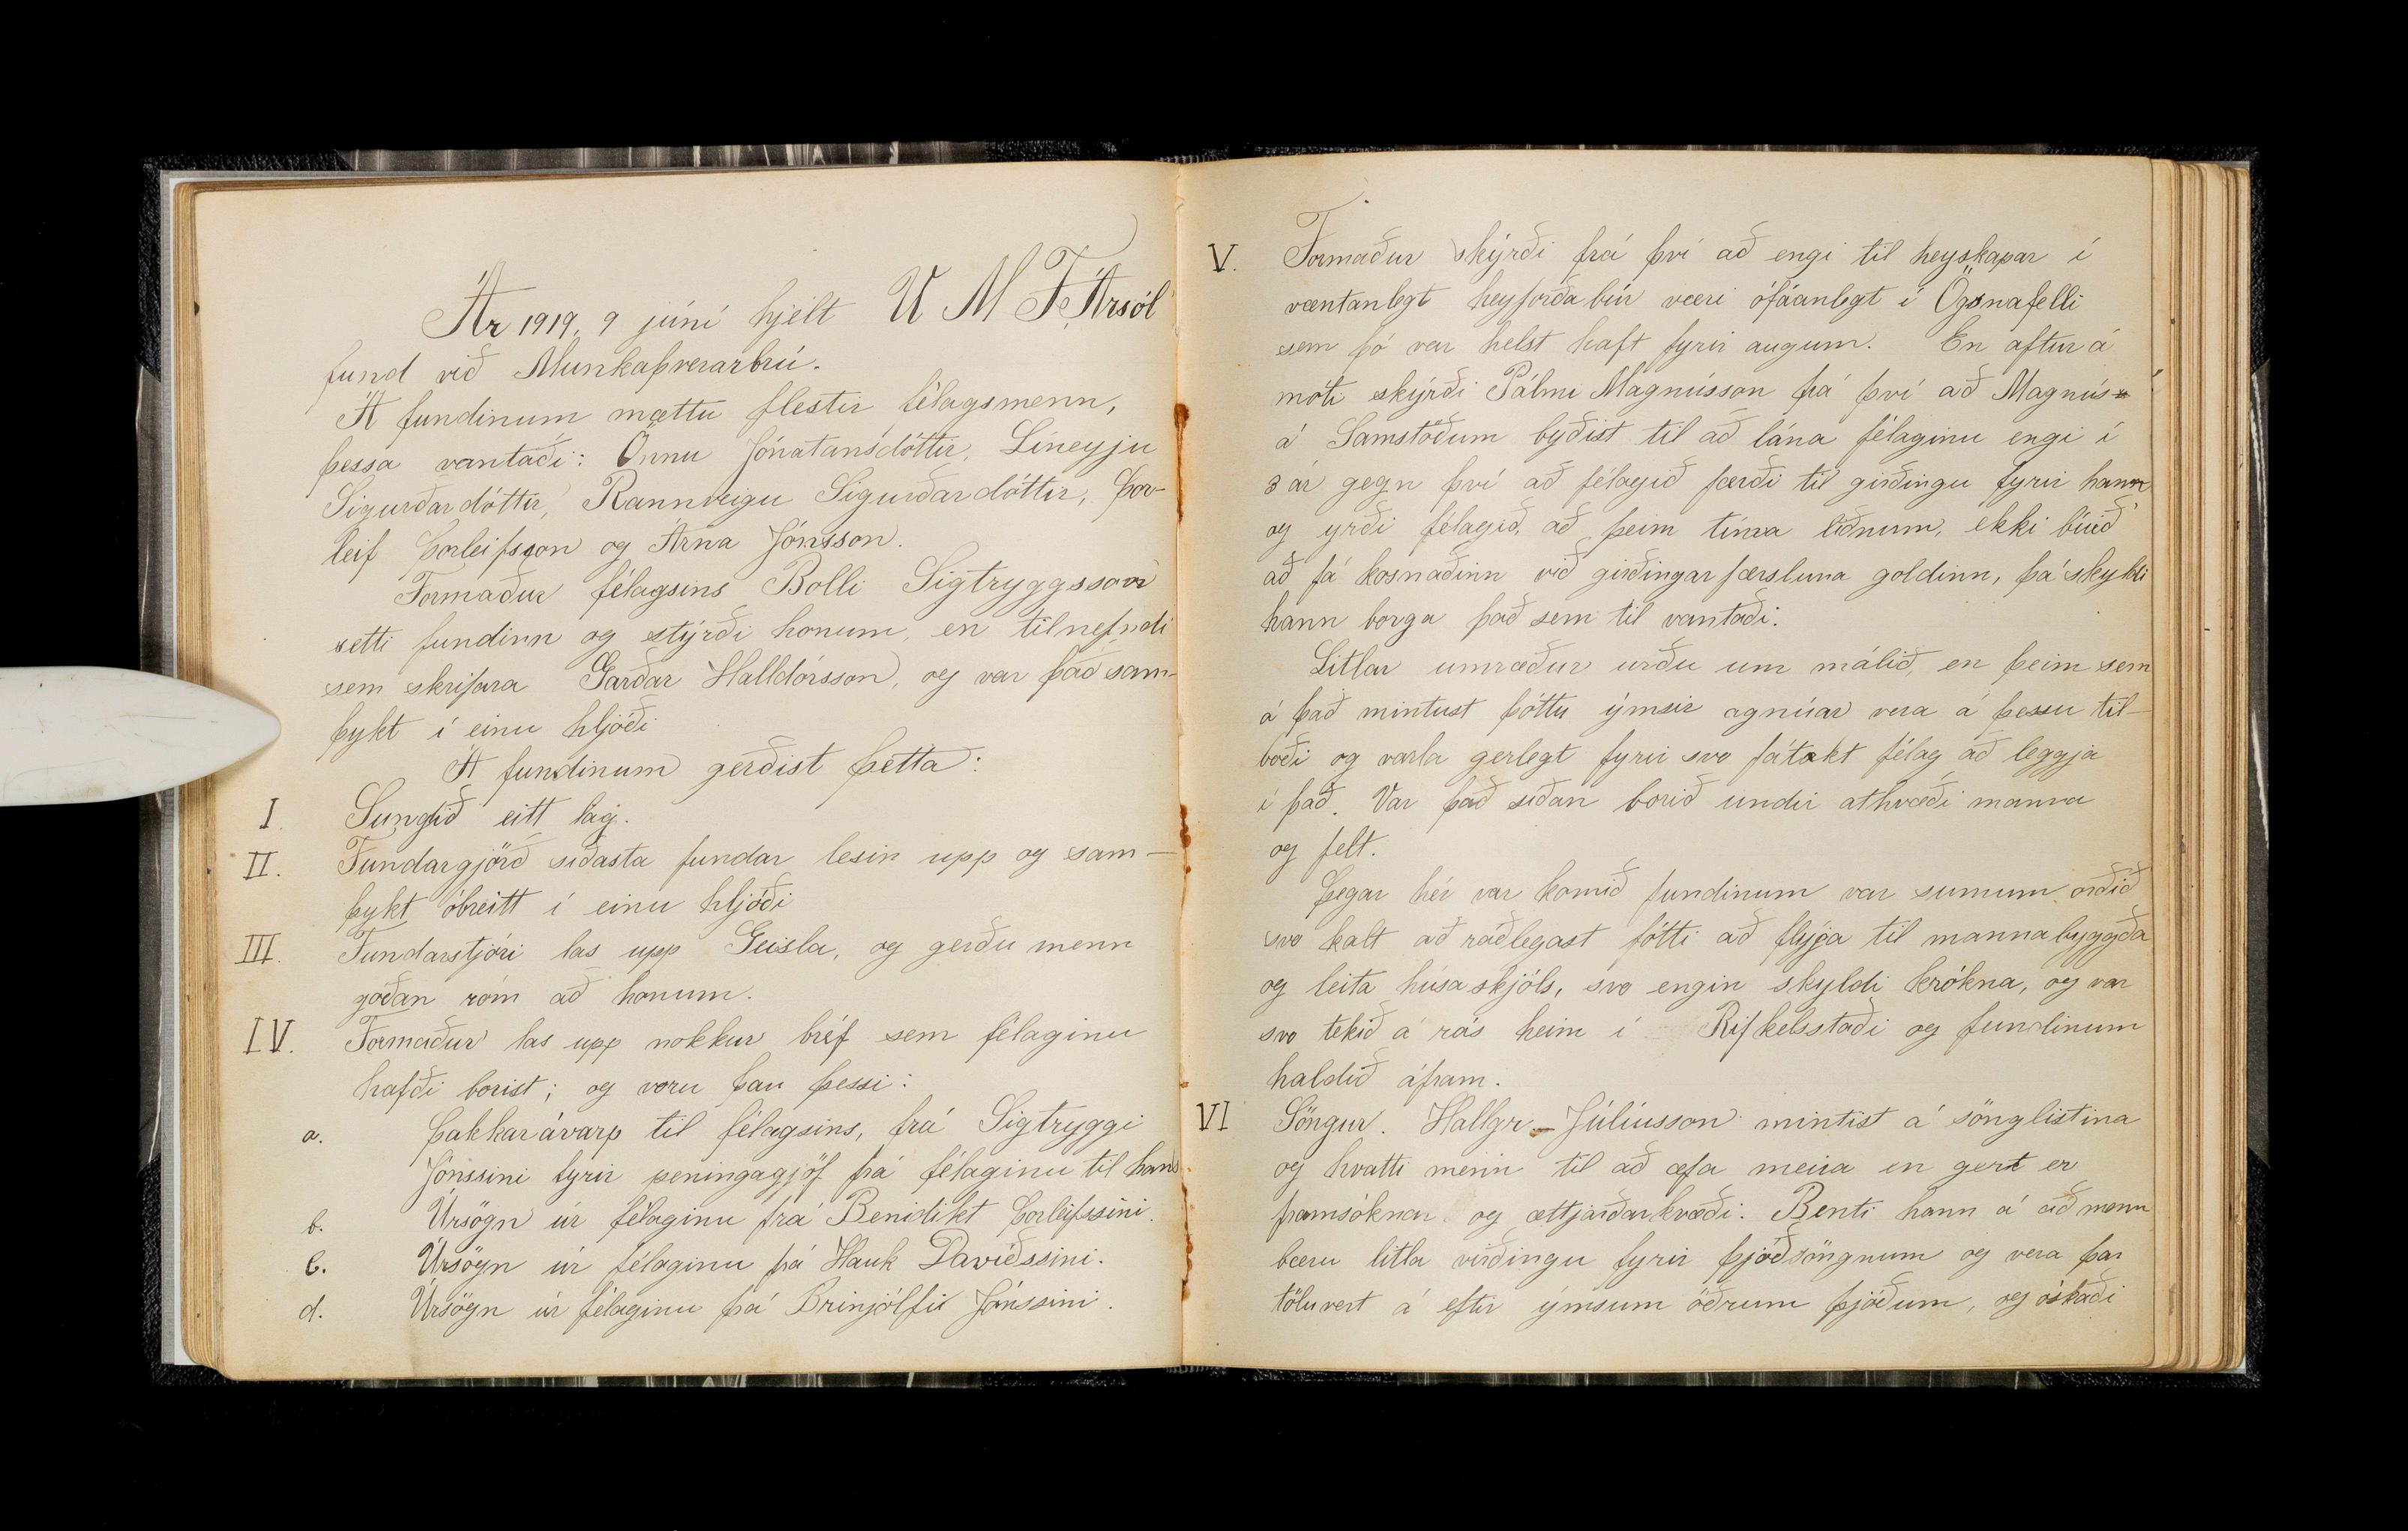 Ár 1919, 9 júní hjelt U M F. Ársól
fund við Munkaþverarbrú.
Á fundinum mættu flestir félagsmenn,
þessa vantaði: Önnu Jónatansdóttir, Líneyju
Sigurðardóttir, Rannveigu Sigurðardóttir, Þor-
leif Þorleifsson og Árna Jónsson.
Formaður félagsins Bolli Sigtryggsson
setti fundinn og stýrði honum, en tilnefndi
sem skrifara Garðar Halldórsson, og var það sam-
þykt í einu hljóði
Á fundinum gerðist þetta:
I. Sungið eitt lag.
II. Fundargjörð síðasta fundar lesin upp og sam-
þykt óbreitt í einu hljóði
III. Fundarstjóri las upp Geisla, og gerðu menn
góðan róm að honum.
IV. Formaður las upp nokkur bréf sem félaginu
hafði borist; og voru þau þessi:
a. Þakkarávarp til félagsins, frá Sigtryggi
Jónssini fyrir peningagjöf frá félaginu til hans.
b. Úrsögn úr félaginu frá Benidikt Þorleifssini.
c. Úrsögn úr félaginu frá Hauk Davíðssini.
d. Úrsögn úr félaginu frá Brinjólfi Jónssini.
V. Formaður skýrði frá því að engi til heyskapar í
væntanlegt heyforðabúr væri ófáanlegt í Öxnafelli
sem þó var helst haft fyrir augum. En aftur á
móti skýrði Pálmi Magnússon frá því að Magnús
á Samstöðum byðist til að lána félaginu engi í
3 ár gegn því að félagið færði til girðingu fyrir hann
og yrði félagið, að þeim tíma liðnum, ekki búið
að fá kosnaðinn við girðingarfærsluna goldinn, þá skyldi
hann borga það sem til vantaði.
Litlar umræður urðu um málið, en þeim sem
á það mintust þóttu ýmsir agnúar vera á þessu til-
boði og varla gerlegt fyrir svo fátækt félag að leggja
í það. Var það síðan borið undir athvæði manna
og felt.
Þegar hér var komið fundinum var sumum orðið
svo kalt að ráðlegast þótti að flýja til mannabyggða
og leita húsaskjóls, svo engin skyldi krókna, og var
svo tekið á rás heim í Rifkelsstaði og fundinum
haldið áfram.
VI Söngur. Hallgr. Júlíusson mintist á sönglistina
og hvatti menn til að æfa meira en gert er
framsóknar og ættjarðarkvæði. Benti hann á að menn
bæru litla virðingu fyrir þjóðsöngnum og vera þar
töluvert á eftir ýmsum öðrum þjóðum, og óskaði